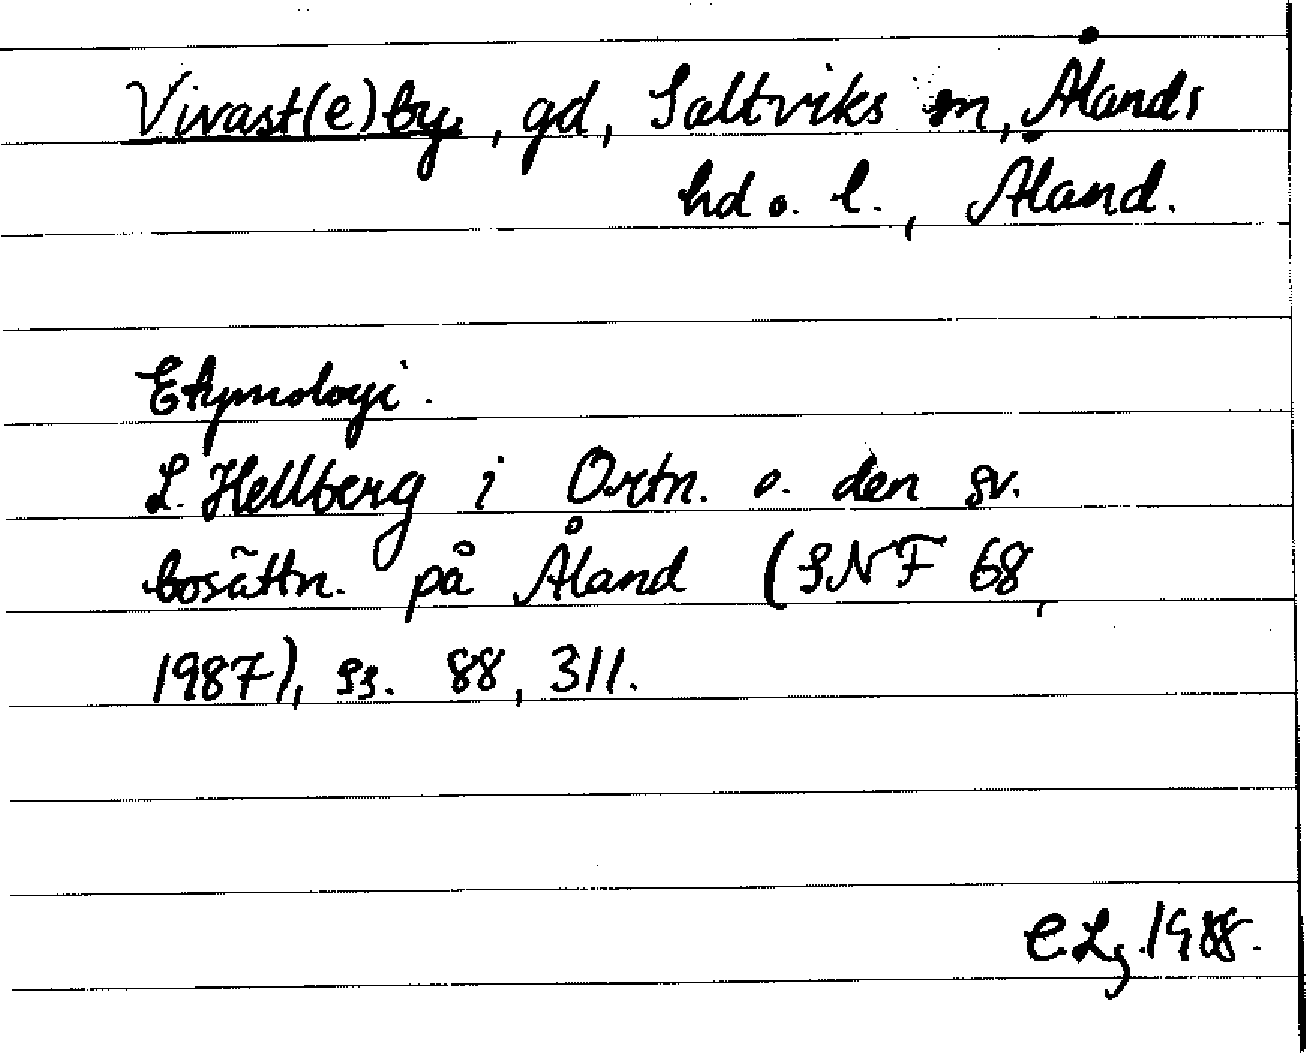 Vivast(e)by, gd, Saltviks sn, Ålands
hd o. l., Åland.
Etymologi.
L. Hellberg i Ortn. o. den sv.
bosättn. på Åland (SNF 68,
1987), ss. 88, 311.
CLg. 1988.